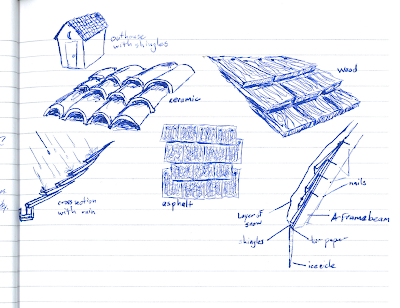 outhouse
with shingles
ceramic
wood
?
cross section
with rain
asphalt
nails
Layer of
snow
A-frame beam
shingles
tar paper
icicle